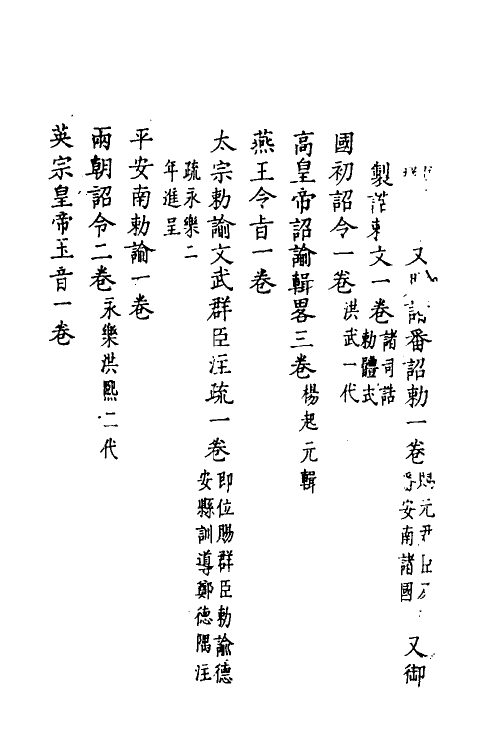 又 番詔勅一卷 元 安南諸國 又御
製誥 文一卷 諸司誥勅體式
國初詔令一卷 洪武一代
高皇帝詔諭輯畧三卷 楊起元輯
燕王令旨一卷
太宗勅諭文武群臣注疏一卷 即位賜群臣勅諭德安縣訓導鄭德隅注
疏永樂二年進呈
平安南勅諭一卷
兩朝詔令二卷 永樂洪熙二代
英宗皇帝玉音一卷